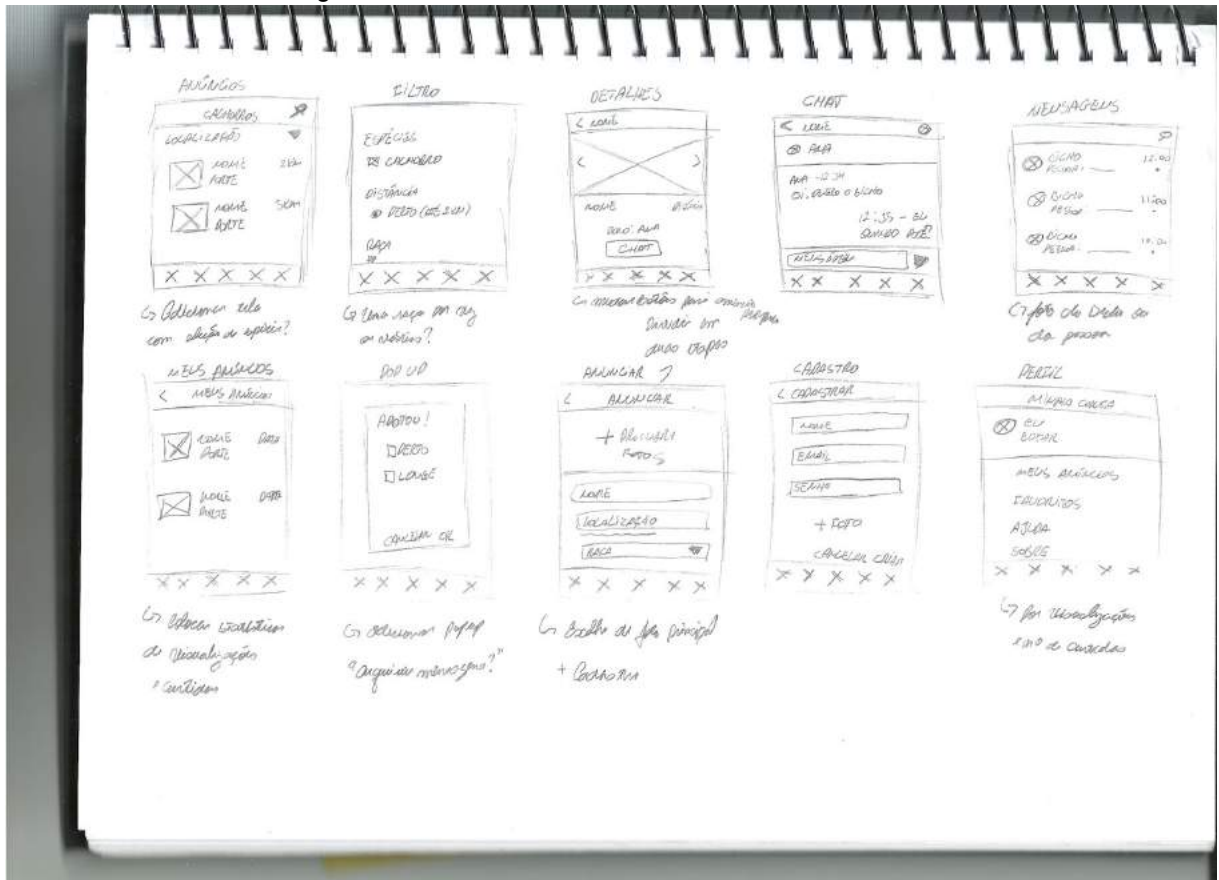 ANÚNCIOS
CACHORROS
LOCALIZAÇÃO
NOME 2KM
PORTE
NOME 5KM
PORTE
↳ Adicionar tela
com seleção de espécie?
FILTRO
ESPÉCIES
CACHORRO
DISTÂNCIA
PERTO (ATÉ 2KM)
RAÇA
↳ Uma raça por vez
ou várias?
DETALHES
< NOME
< >
NOME
ANA
CHAT
↳ botões para
Dividir em
duas etapas
CHAT
< NOME
ANA
ANA - 12:34
OI, QUERO O BICHO
12:35 - EU
MENSAGEM
MENSAGENS
BICHO 12:00
PESSOA:
BICHO 11:00
PESSOA:
BICHO
PESSOA:
↳ foto do bicho ou
da pessoa
MEUS ANÚNCIOS
< MEUS ANÚNCIOS
NOME DATA
PORTE
NOME DATA
PORTE
↳ Colocar estatísticas
de visualizações
e curtidas
POP UP
ADOTOU!
PERTO
LONGE
CANCELAR OK
↳ adicionar popup
"arquivar mensagens?"
ANUNCIAR
< ANUNCIAR
+ PROCURAR
FOTOS
NOME
LOCALIZAÇÃO
RAÇA
↳ Escolha de foto principal
+ Cadastrar
CADASTRO
< CADASTRAR
NOME
EMAIL
SENHA
+ FOTO
CANCELAR CRIAR
PERFIL
MINHA CONTA
EU
EDITAR
MEUS ANÚNCIOS
FAVORITOS
AJUDA
SOBRE
↳ por visualizações
e nº de curtidas